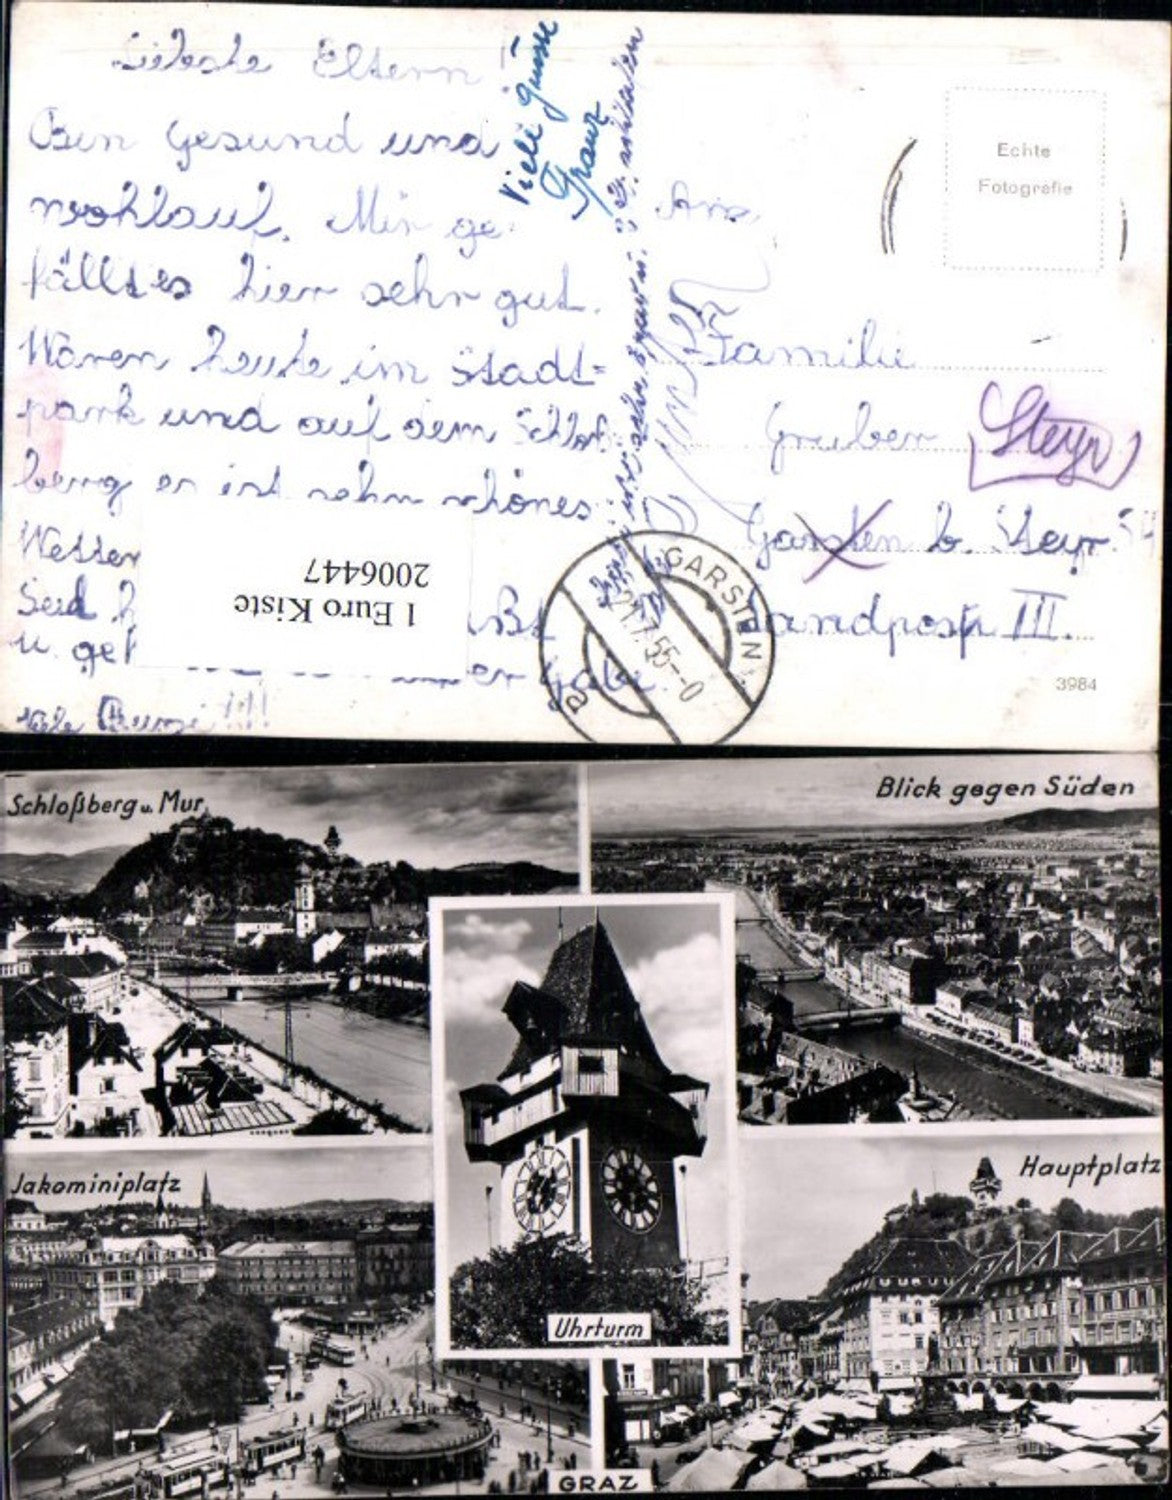 Liebste Eltern!
Bin gesund und
wohlauf. Mir ge-
fällt es hier sehr gut.
Waren heute im Stadt=
park und auf dem Schloß
berg es ist sehr schönes
Wetter
Seid
u. gel
er Gabi.
Viele Bussi!!!
Viele Grüsse
Franz
Echte
Fotografie
Familie
Gruber
Steyr
Garsten b. Steyr
Landpost III.
3984
GARSTEN
21.7.55--0
1 Euro Kiste
2006447
Schloßberg u. Mur
Blick gegen Süden
Jakominiplatz
Hauptplatz
Uhrturm
GRAZ